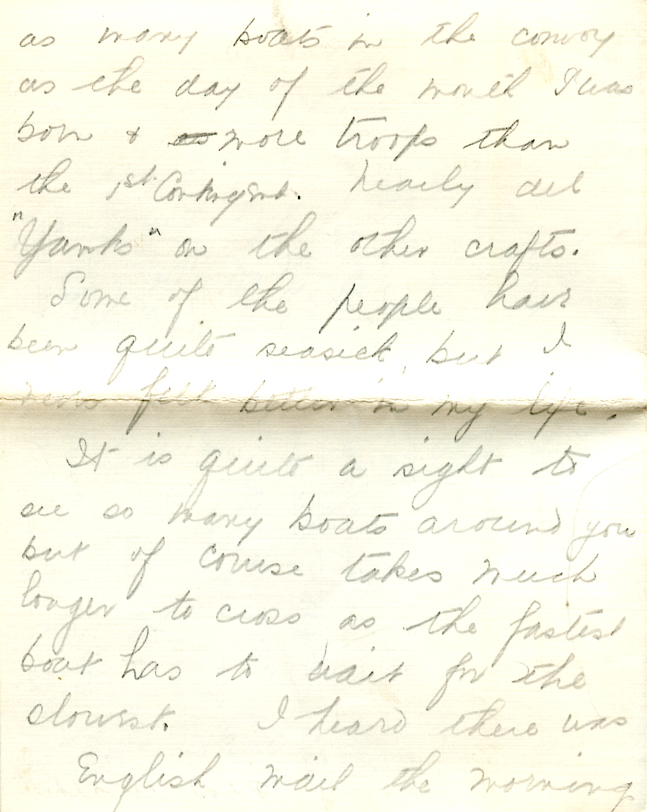 as many boats in the convoy
as the day of the month I was
born & as more troops than
the 1st Contingent. Nearly all
"Yanks" on the other crafts.
Some of the people have
been quite seasick, but I
never felt better in my life.
It is quite a sight to
see so many boats around you
but of course takes much
longer to cross as the fastest
boat has to wait for the
slowest. I heard there was
English mail the morning